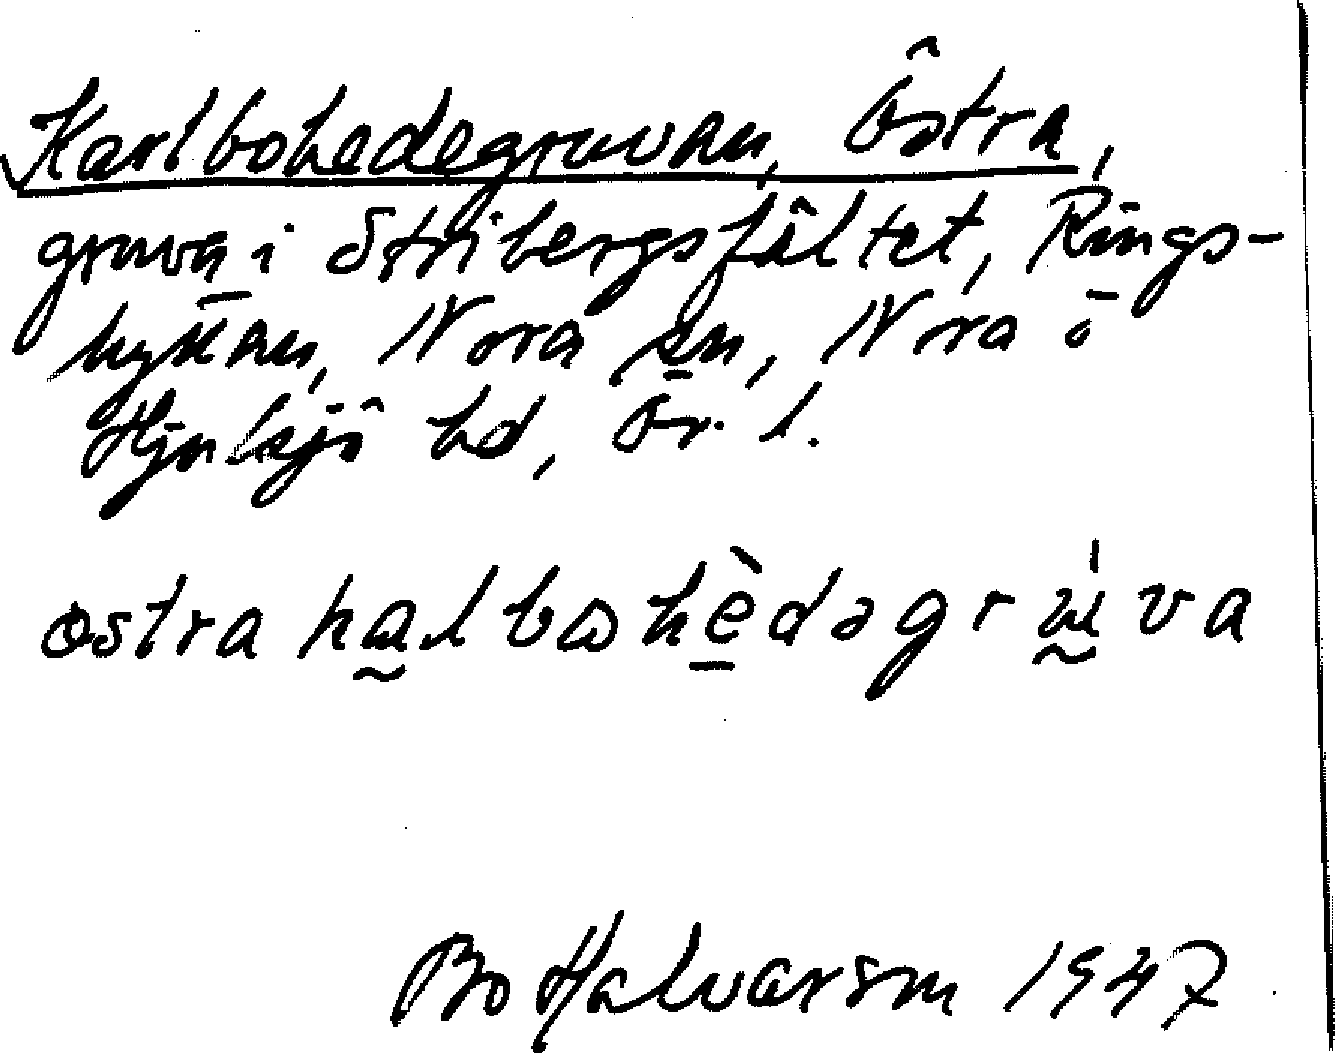 Karlbohedegruvan, Östra,
gruva i Stribergsfältet, Rings-
hyttan, Nora sn, Nora o
Hjulsjö hd, Ör. l.
östra kalbohèdəgrúva
Bo Halvarson 1947